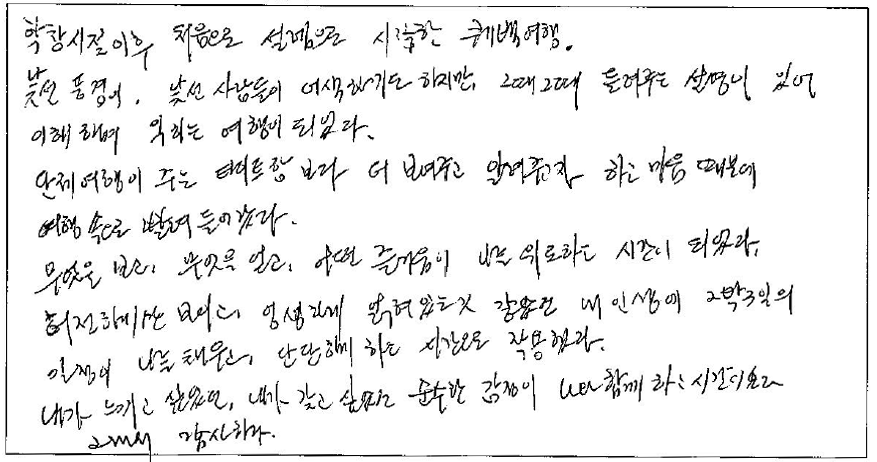 학창시절 이후 처음으로 설렘으로 시작한 태백여행.
낯선 풍경에, 낯선 사람들이 어색하기도 하지만, 그때그때 들려주는 설명이 있어
이해하며 익히는 여행이 되었다.
단체여행이 주는 타이트함 보다 더 보여주고 알려주고자 하는 마음 때문에
여행 속으로 빨려 들어갔다.
무엇을 보고, 무엇을 얻고, 어떤 즐거움이 나를 위로하는 시간이 되었다.
허전하게만 보이고, 엉성하게 얽혀있는것 같았던 내 인생에 2박3일의
일정이 나를 채우고, 단단하게 하는 시간으로 작용했다.
내가 느끼고 싶었던, 내가 갖고 싶었던 순수한 감정이 나와 함께 하는 시간이었다
그래서 감사하다.